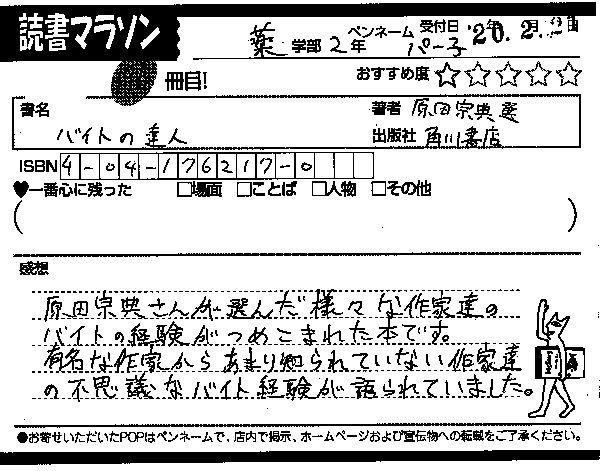 読書マラソン
薬学部 2年 ペンネーム パー子 受付日 '20. 2.
冊目!
おすすめ度 ☆☆☆☆☆
書名 バイトの達人
著者 原田宗典選
出版社 角川書店
ISBN 4-04-176217-0
♥一番心に残った □場面 □ことば □人物 □その他
( )
感想
原田宗典さんが選んだ様々な作家達の
バイトの経験がつめこまれた本です。
有名な作家からあまり知られていない作家達
の不思議なバイト経験が語られていました。
●お寄せいただいたPOPはペンネームで、店内で掲示、ホームページおよび宣伝物への転載をご了承ください。